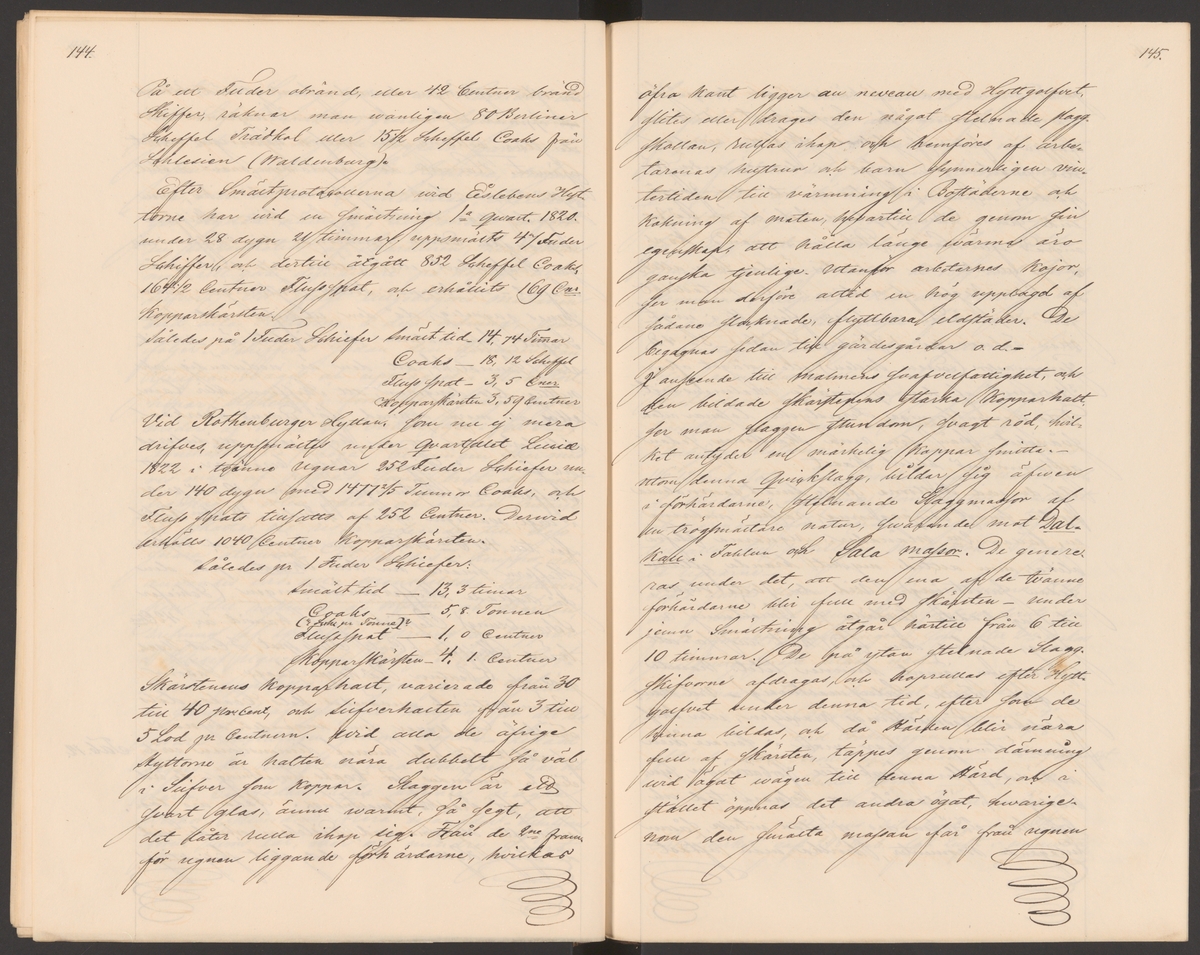 144.
På ett Fuder obränd, eller 42 Centner bränd
Skiffer, räknar man wanligen 80 Berliner
Scheffel Trädkol eller 15½ Scheffel Coaks från
Schlesien (Waldenburg).
Efter Smältprotocollerna wid Eislebens Hyt-
torne har wid en smältning 1a Qwart. 1820.
under 28 dygn 21 timmar, uppsmälts 47 Fuder
Schiffer, och dertill åtgått 852 Scheffel Coaks,
164½ Centner Flusspat, och erhållits 169 Cnr
Kopparskärsten.
Således på 1 Fuder Schiefer Smält tid 14,74 Timar
Coaks — 18,12 Scheffel
Fluss spat — 3,5 Cner
Kopparskärsten 3,59 Centner
Vid Rothenburger Hyttan, som nu ej mera
drifves, uppsmältes under Qvartalet Luciæ
1822 i twänne ugnar 252 Fuder Schiefer un-
der 140 dygn med 1477⅖ Tunnor Coaks, och
Fluss spats tillsatts af 252 Centner. Derwid
erhölls 1040 Centner Kopparskärsten.
Således pr 1 Fuder Schiefer:
Smält tid — 13,3 timar
Coaks — 5,8 Tonnen
Flusspat — 1,0 Centner
Kopparskärsten — 4,1 Centner
Skärstenens Kopparhalt, varierade från 30
till 40 procent, och Silfverhalten från 3 till
5 Lod pr Centnern. Wid alla de öfrige
Hyttorne är halten nära dubbelt så väl
i Silfver som Koppar. Slaggen är ett
svart glas, ännu warmt, så segt, att
det låter rulla ihop sig. Från de 2ne fram-
för ugnen liggande förhärdarne, hvilkas
145.
öfra kant ligger au neveau med Hyttgolfvet,
slites eller drages den något stelnade slagg
skollan, rullas ihop och hemföres af arbe-
tarenas hustrur och barn synnerligen vin-
tertiden till värmning i Bostäderne och
kokning af maten, hvartill de genom sin
egenskap att hålla länge wärma äro
ganska tjenlige. Utanför arbetarnes Kojor,
ser man derföre alltid en hög upplagd af
sådane slocknade, flyttbara eldstäder. De
begagnas sedan till gärdesgårdar o.d. —
I anseende till malmens svafvelfattighet, och
den bildade Skärstenens starka Kopparhalt
ser man slaggen stundom, svagt röd, hvil-
ket antyder en märkelig Koppar smitta. —
utom denna Qvickslagg, bildar sig äfwen
i förhärdarne, stelnande Slaggmassor af
en trögsmältare natur, swarande mot Dal-
kall i Fahlun och Sala massor. De genere-
ras under det, att den ena af de twänne
förhärdarne blir full med Skärsten — under
jemn Smältning åtgår härtill från 6 till
10 timmar. De på ytan stelnade Slagg-
skifvorne afdragas, och hoprullas efter Hytt-
golfvet under denna tid, efter som de
hunna bildas, och då Härden blir nära
full af Skärsten, täppes genom dämning
wid ögat wägen till denna Härd, och i
stället öppnas det andra ögat, hwarige-
nom den smälta massan får från ugnen